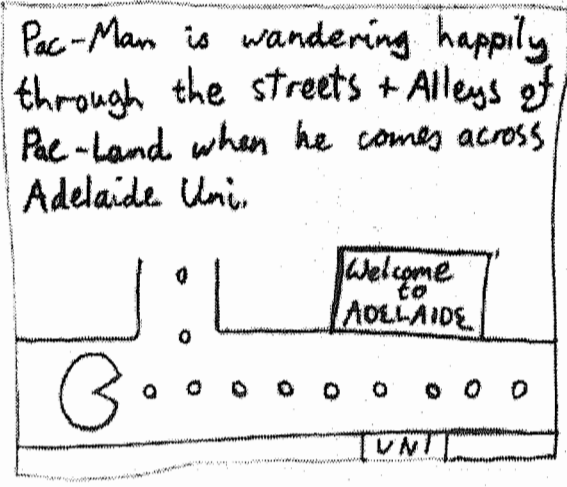 Pac-Man is wandering happily
through the streets + Alleys of
Pac-Land when he comes across
Adelaide Uni.
Welcome
to
ADELAIDE
UNI